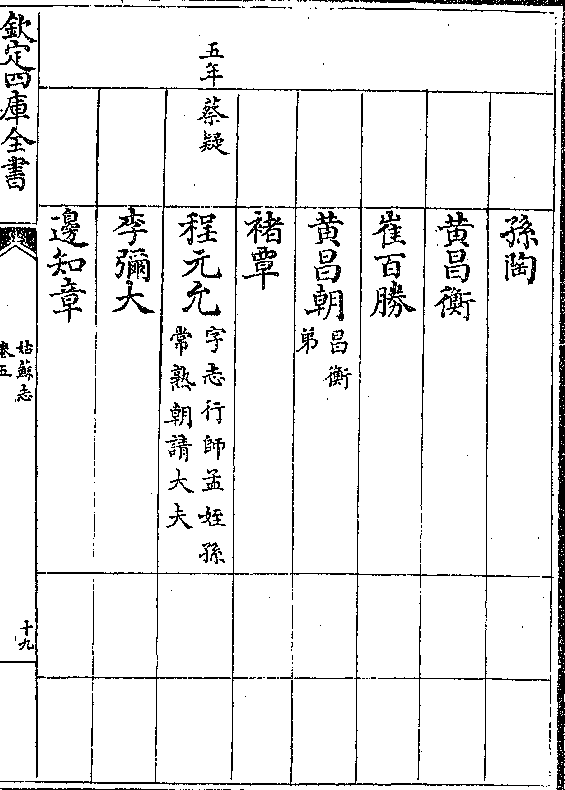 孫陶
黄昌衡
崔百勝
黄昌朝
昌衡
弟
褚覃
五年
蔡疑
程元允
字志行師孟姪孫
常熟朝請大夫
李彌大
邊知章
欽定四庫全書
姑蘇志
卷五
十九